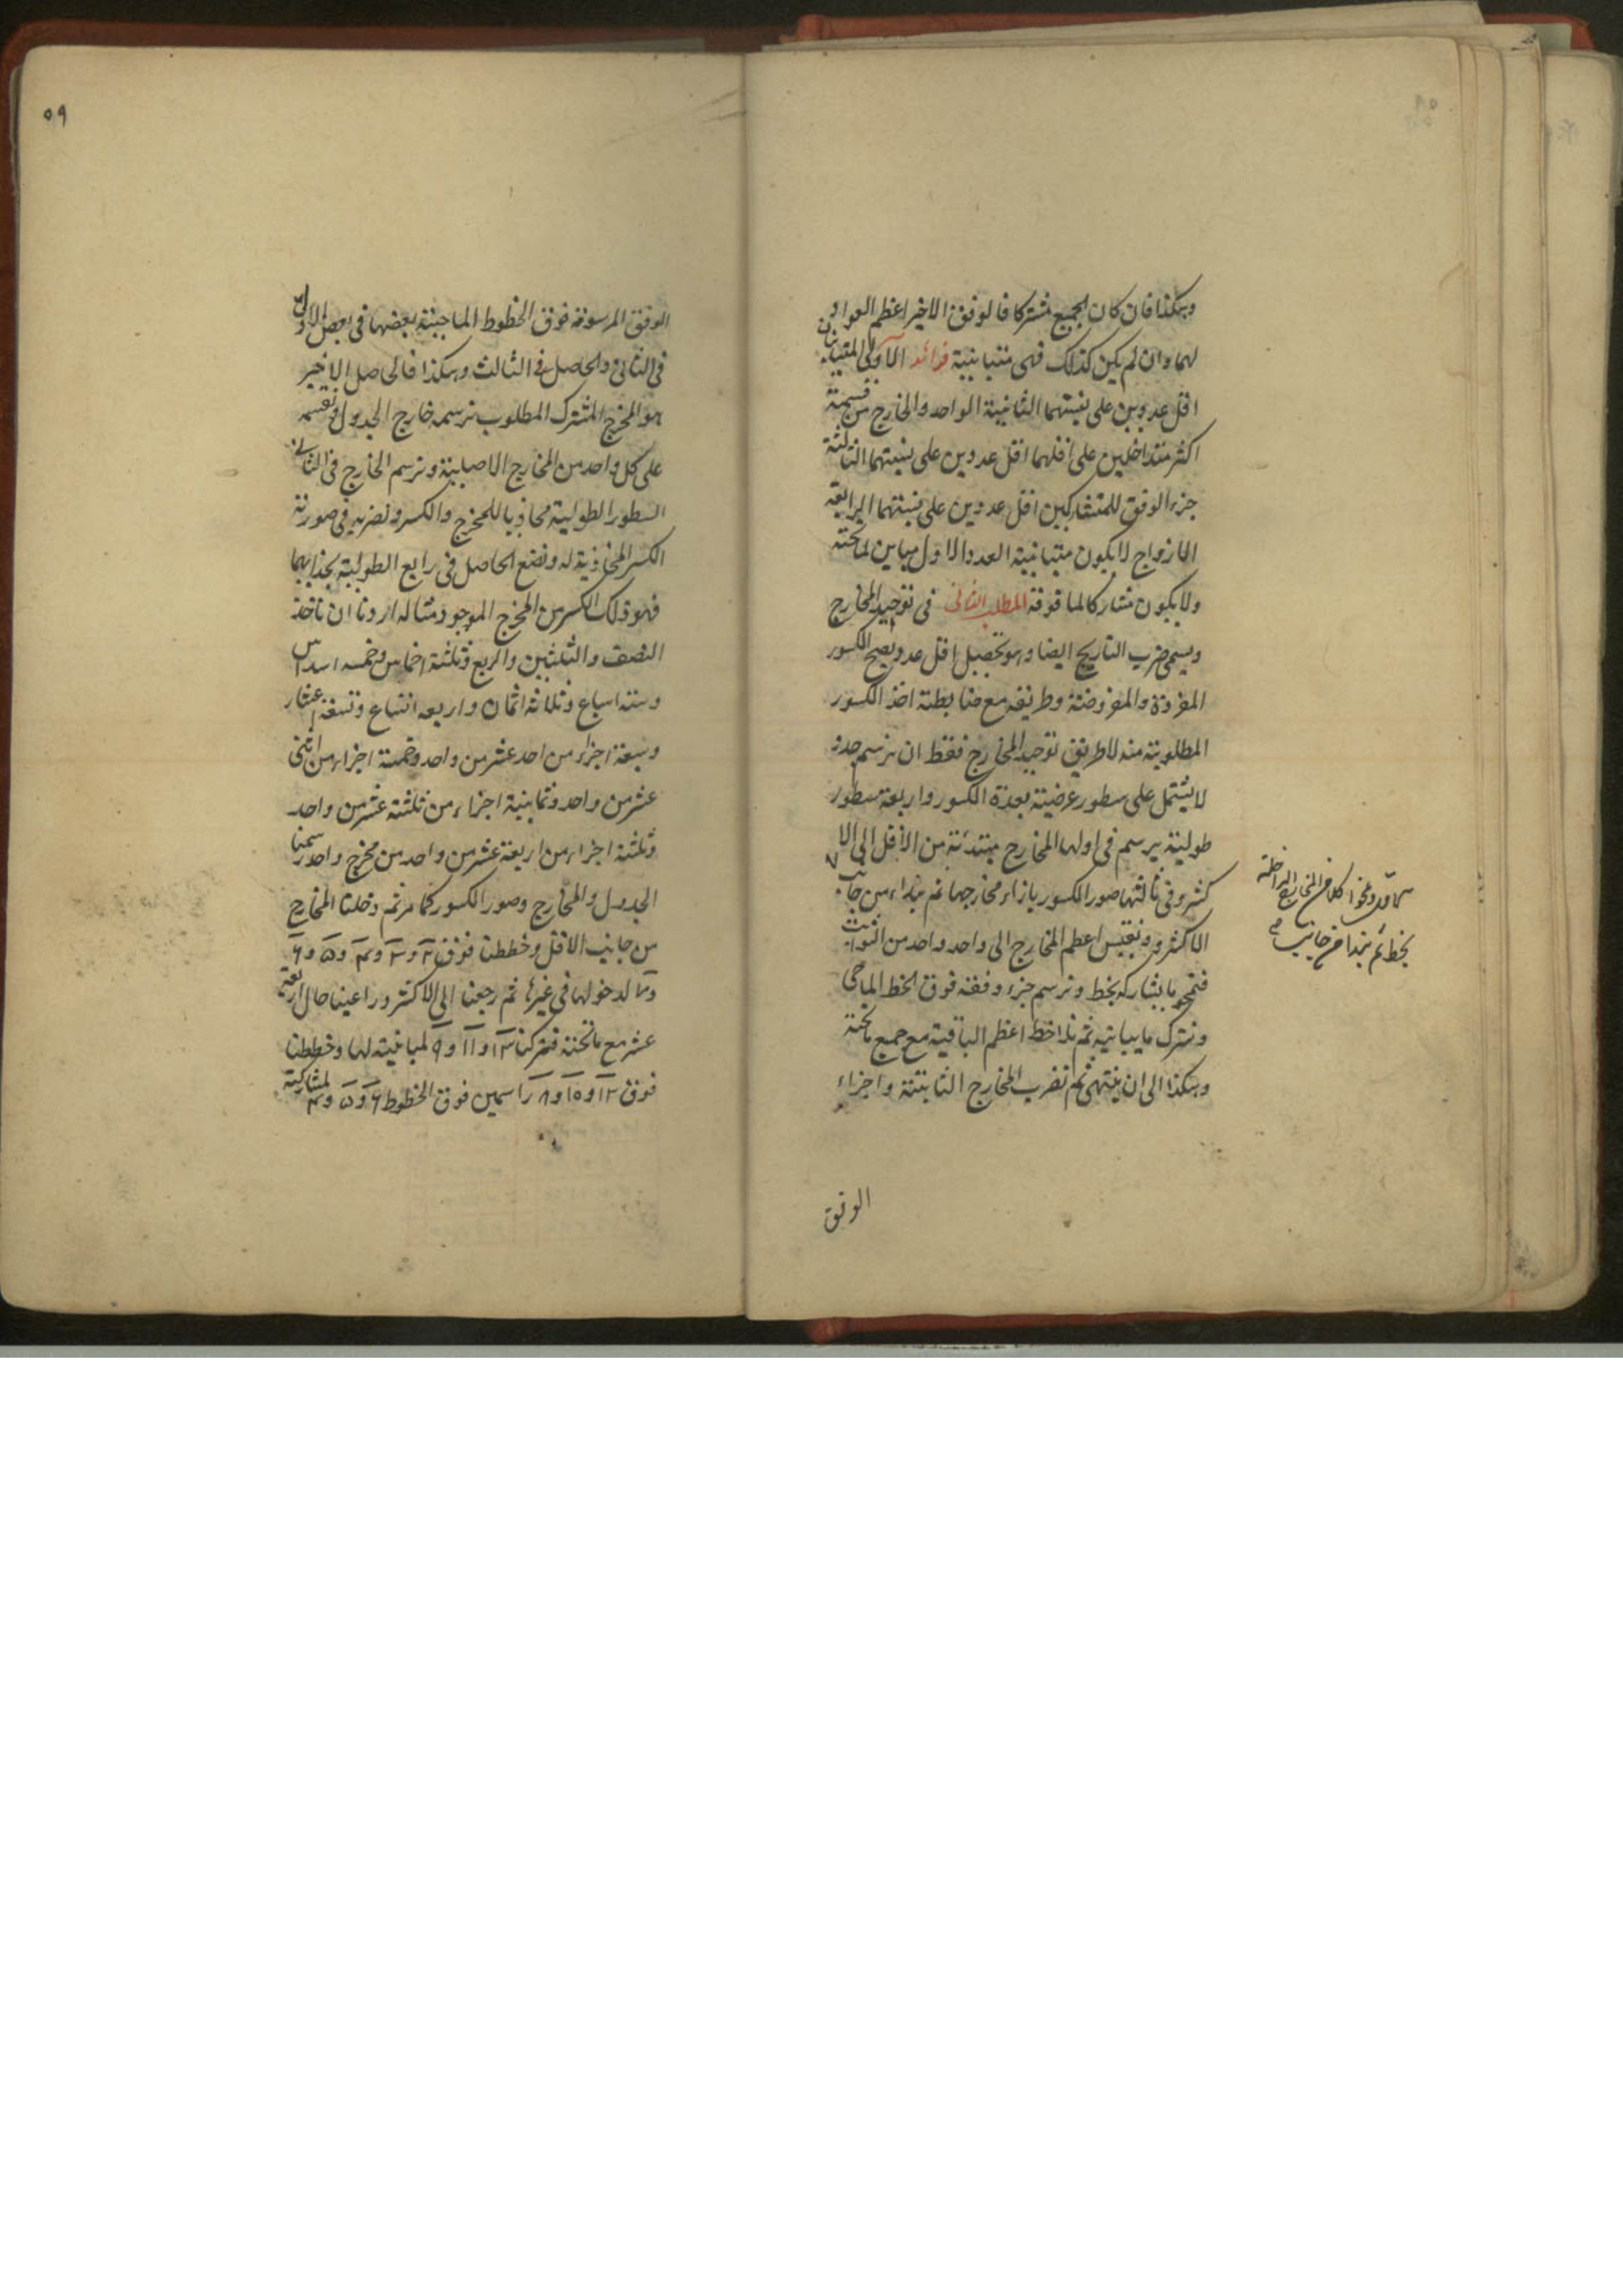 وهكذا فان كان الجميع مشتركا فالوفق الاخير اعظم العواد
لها وان لم يكن كذلك فهى متباينة فوائد الاولى المتباينان
اقل عددين على نسبتهما الثانية الواحد والخارج من قسمة
اكثر متداخلين على اقلهما اقل عددين على نسبتهما الثالثة
جزء الوفق للمتشاركين اقل عددين على نسبتهما الرابعة
الازواج لا يكون متباينة العدد الاول مباين لما تحته
ولا يكون مشاركا لما فوقه المطلب الثانى فى توحيد المخارج
ويسمى ضرب التاريح ايضا وهو تحصيل اقل عدد يصح الكسور
المفردة والمفروضة وطريقه مع ضابطة اخذ الكسور
المطلوبة منه لا طريق توحيد المخارج فقط ان نرسم جدو
لا يشتمل على سطور عرضية بعدة الكسور واربعة سطور
طولية يرسم فى اولها المخارج مبتدئة من الاقل الى الا
كثر وفى ثالثها صور الكسور بازاء مخارجها ثم نبداء من جانب
الاكثر ونقيس اعظم المخارج الى واحد واحد من الثوابت
فنمحو ما يشاركه بخط ونرسم جزء وفقه فوق الخط الماحى
ونترك ما يباينه ثم نلاحظ اعظم الباقية مع جميع ما تحته
وهكذا الى ان ينتهى ثم نضرب المخارج الثابتة واجزاء
الوفق
بخط ثم نبدا من جانب
٥٩
الوفق المرسومة فوق الخطوط الماحية بعضها فى بعض الاول
فى الثانى والحاصل فى الثالث وهكذا فالحاصل الاخير
هو المخرج المشترك المطلوب نرسمه خارج الجدول ونقسمه
على كل واحد من المخارج الاصلية ونرسم الخارج فى الثانى
السطور الطولية محاذيا للمخرج والكسر ونضربه فى صورة
الكسر المحاذية له ونضع الحاصل فى رابع الطولية بحذائهما
فهو ذلك الكسر من المخرج الموجود مثاله اردنا ان ناخذ
النصف والثلثين والربع وثلثة اخماس وخمسه اسداس
وستة اسباع وثلاثه اثمان واربعه اتساع وتسعة اعشار
وسبعة اجزاء من احد عشر من واحد وخمسة اجزاء من اثنى
عشر من واحد وثمانية اجزاء من ثلثة عشر من واحد
وثلثة اجزاء من اربعة عشر من واحد من مخرج واحد رسمنا
الجدول والمخارج وصور الكسور كما مر ثم دخلنا المخارج
من جانب الاقل وخططنا فوق ٢ و ٣ و ۴ و ۵ و ۶
و ٧ لدخولها فى غيرها ثم رجعنا الى الاكثر وراعينا حال اربعة
عشر مع ما تحته فتركنا ١٣ و ١١ و ٩ لمباينته لها وخططنا
فوق ١٢ و ١٥ و ٨ راسمين فوق الخطوط ۶ و ۵ و ۴ لمشاركته